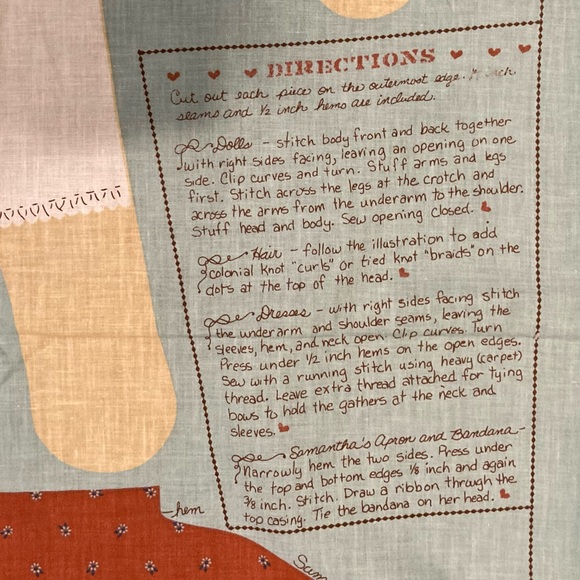 DIRECTIONS
Cut out each piece on the outermost edge. inch
seams and 1/2 inch hems are included.
Dolls - stitch body front and back together
with right sides facing, leaving an opening on one
side. Clip curves and turn. Stuff arms and legs
first. Stitch across the legs at the crotch and
across the arms from the underarm to the shoulder.
Stuff head and body. Sew opening closed.
Hair - follow the illustration to add
colonial knot "curls" or tied knot "braids" on the
dots at the top of the head.
Dresses - with right sides facing stitch
the underarm and shoulder seams, leaving the
sleeves, hem, and neck open. Clip curves. Turn
Press under 1/2 inch hems on the open edges.
Sew with a running stitch using heavy (carpet)
thread. Leave extra thread attached for tying
bows to hold the gathers at the neck and
sleeves.
Samantha's Apron and Bandana -
Narrowly hem the two sides. Press under
the top and bottom edges 1/8 inch and again
3/8 inch. Stitch. Draw a ribbon through the
top casing. Tie the bandana on her head.
hem
Sam